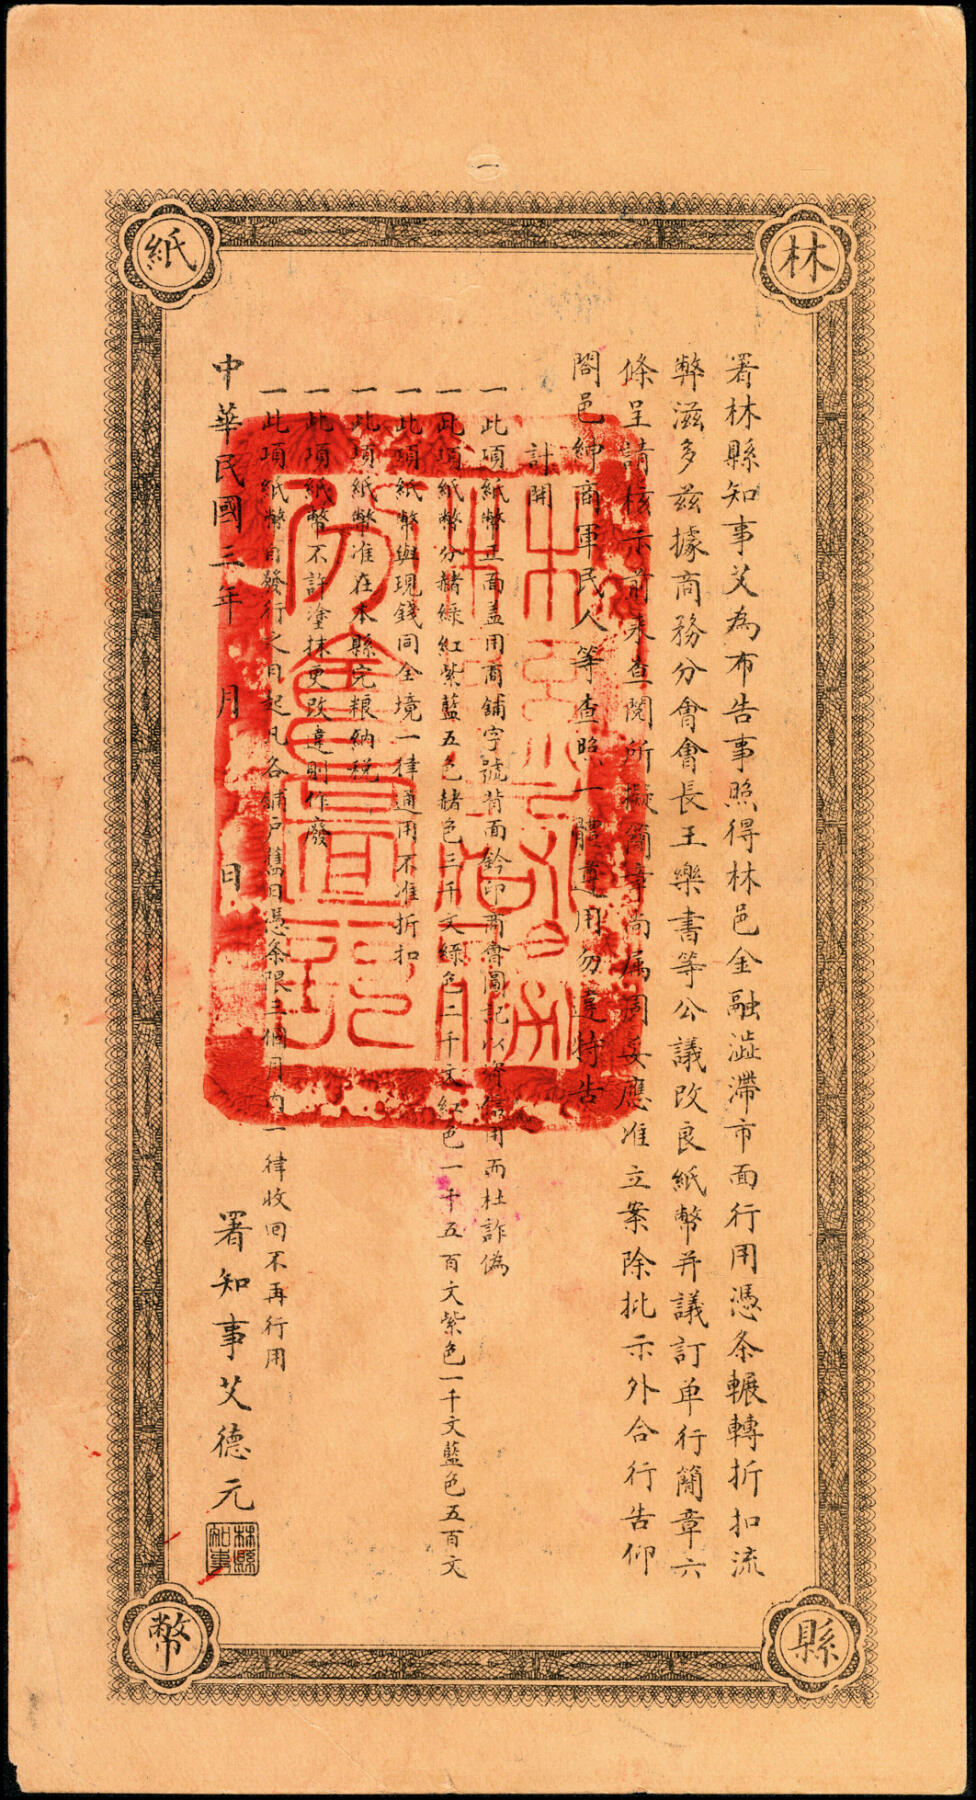 一
林縣紙幣
署林縣知事艾為布告事照得林邑金融澁滯市面行用憑条輾轉折扣流
弊滋多茲據商務分會會長王樂書等公議改良紙幣并議訂单行簡章六
條呈請核示前來查閱所擬簡章尚属周妥應准立案除批示外合行告仰
閤邑紳商軍民人等查照一體遵用勿違特告
計開
一此項紙幣正面盖用商鋪字號背面鈐印商會圖記以符信用而杜詐偽
一此項紙幣分赭綠紅紫藍五色赭色三千文綠色二千文紅色一千五百文紫色一千文藍色五百文
一此項紙幣與現錢同全境一律通用不准折扣
一此項紙幣准在本縣完粮納税
一此項紙幣不許塗抹更改違則作廢
一此項紙幣自發行之日起凡各鋪戶舊日憑条限三個月內一律收回不再行用
中華民國三年 月 日 署知事艾德元
林縣知事